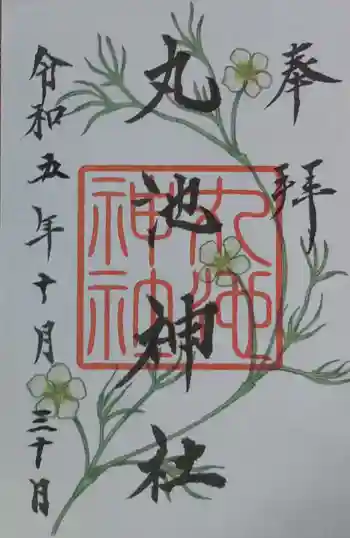 奉拝
丸池神社
丸池
神社
令和五年十月三十日